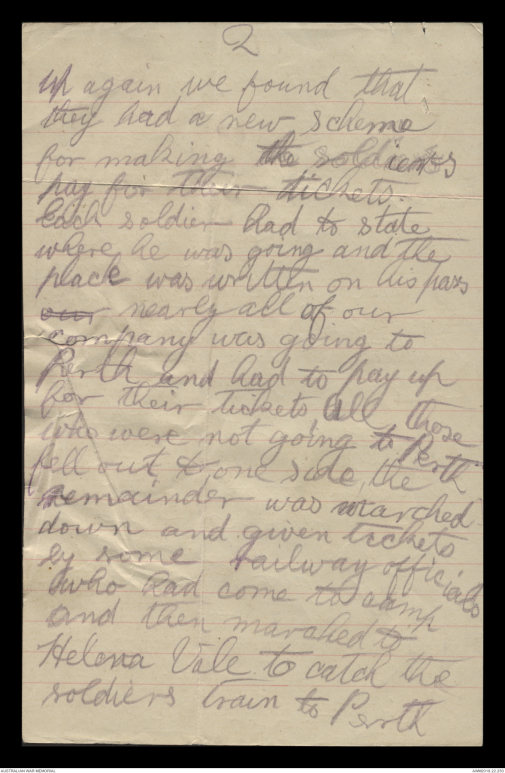 2
up again we found that
they had a new scheme
for making the soldiers
pay for their tickets.
Each soldier had to state
where he was going and the
place was written on his pass
our nearly all of our
company was going to
Perth and had to pay up
for their tickets all those
who were not going to Perth
fell out to one side, the
remainder was marched
down and given tickets
by some railway officials
who had come to camp
and then marched to
Helena Vale to catch the
soldiers train to Perth
AUSTRALIAN WAR MEMORIAL